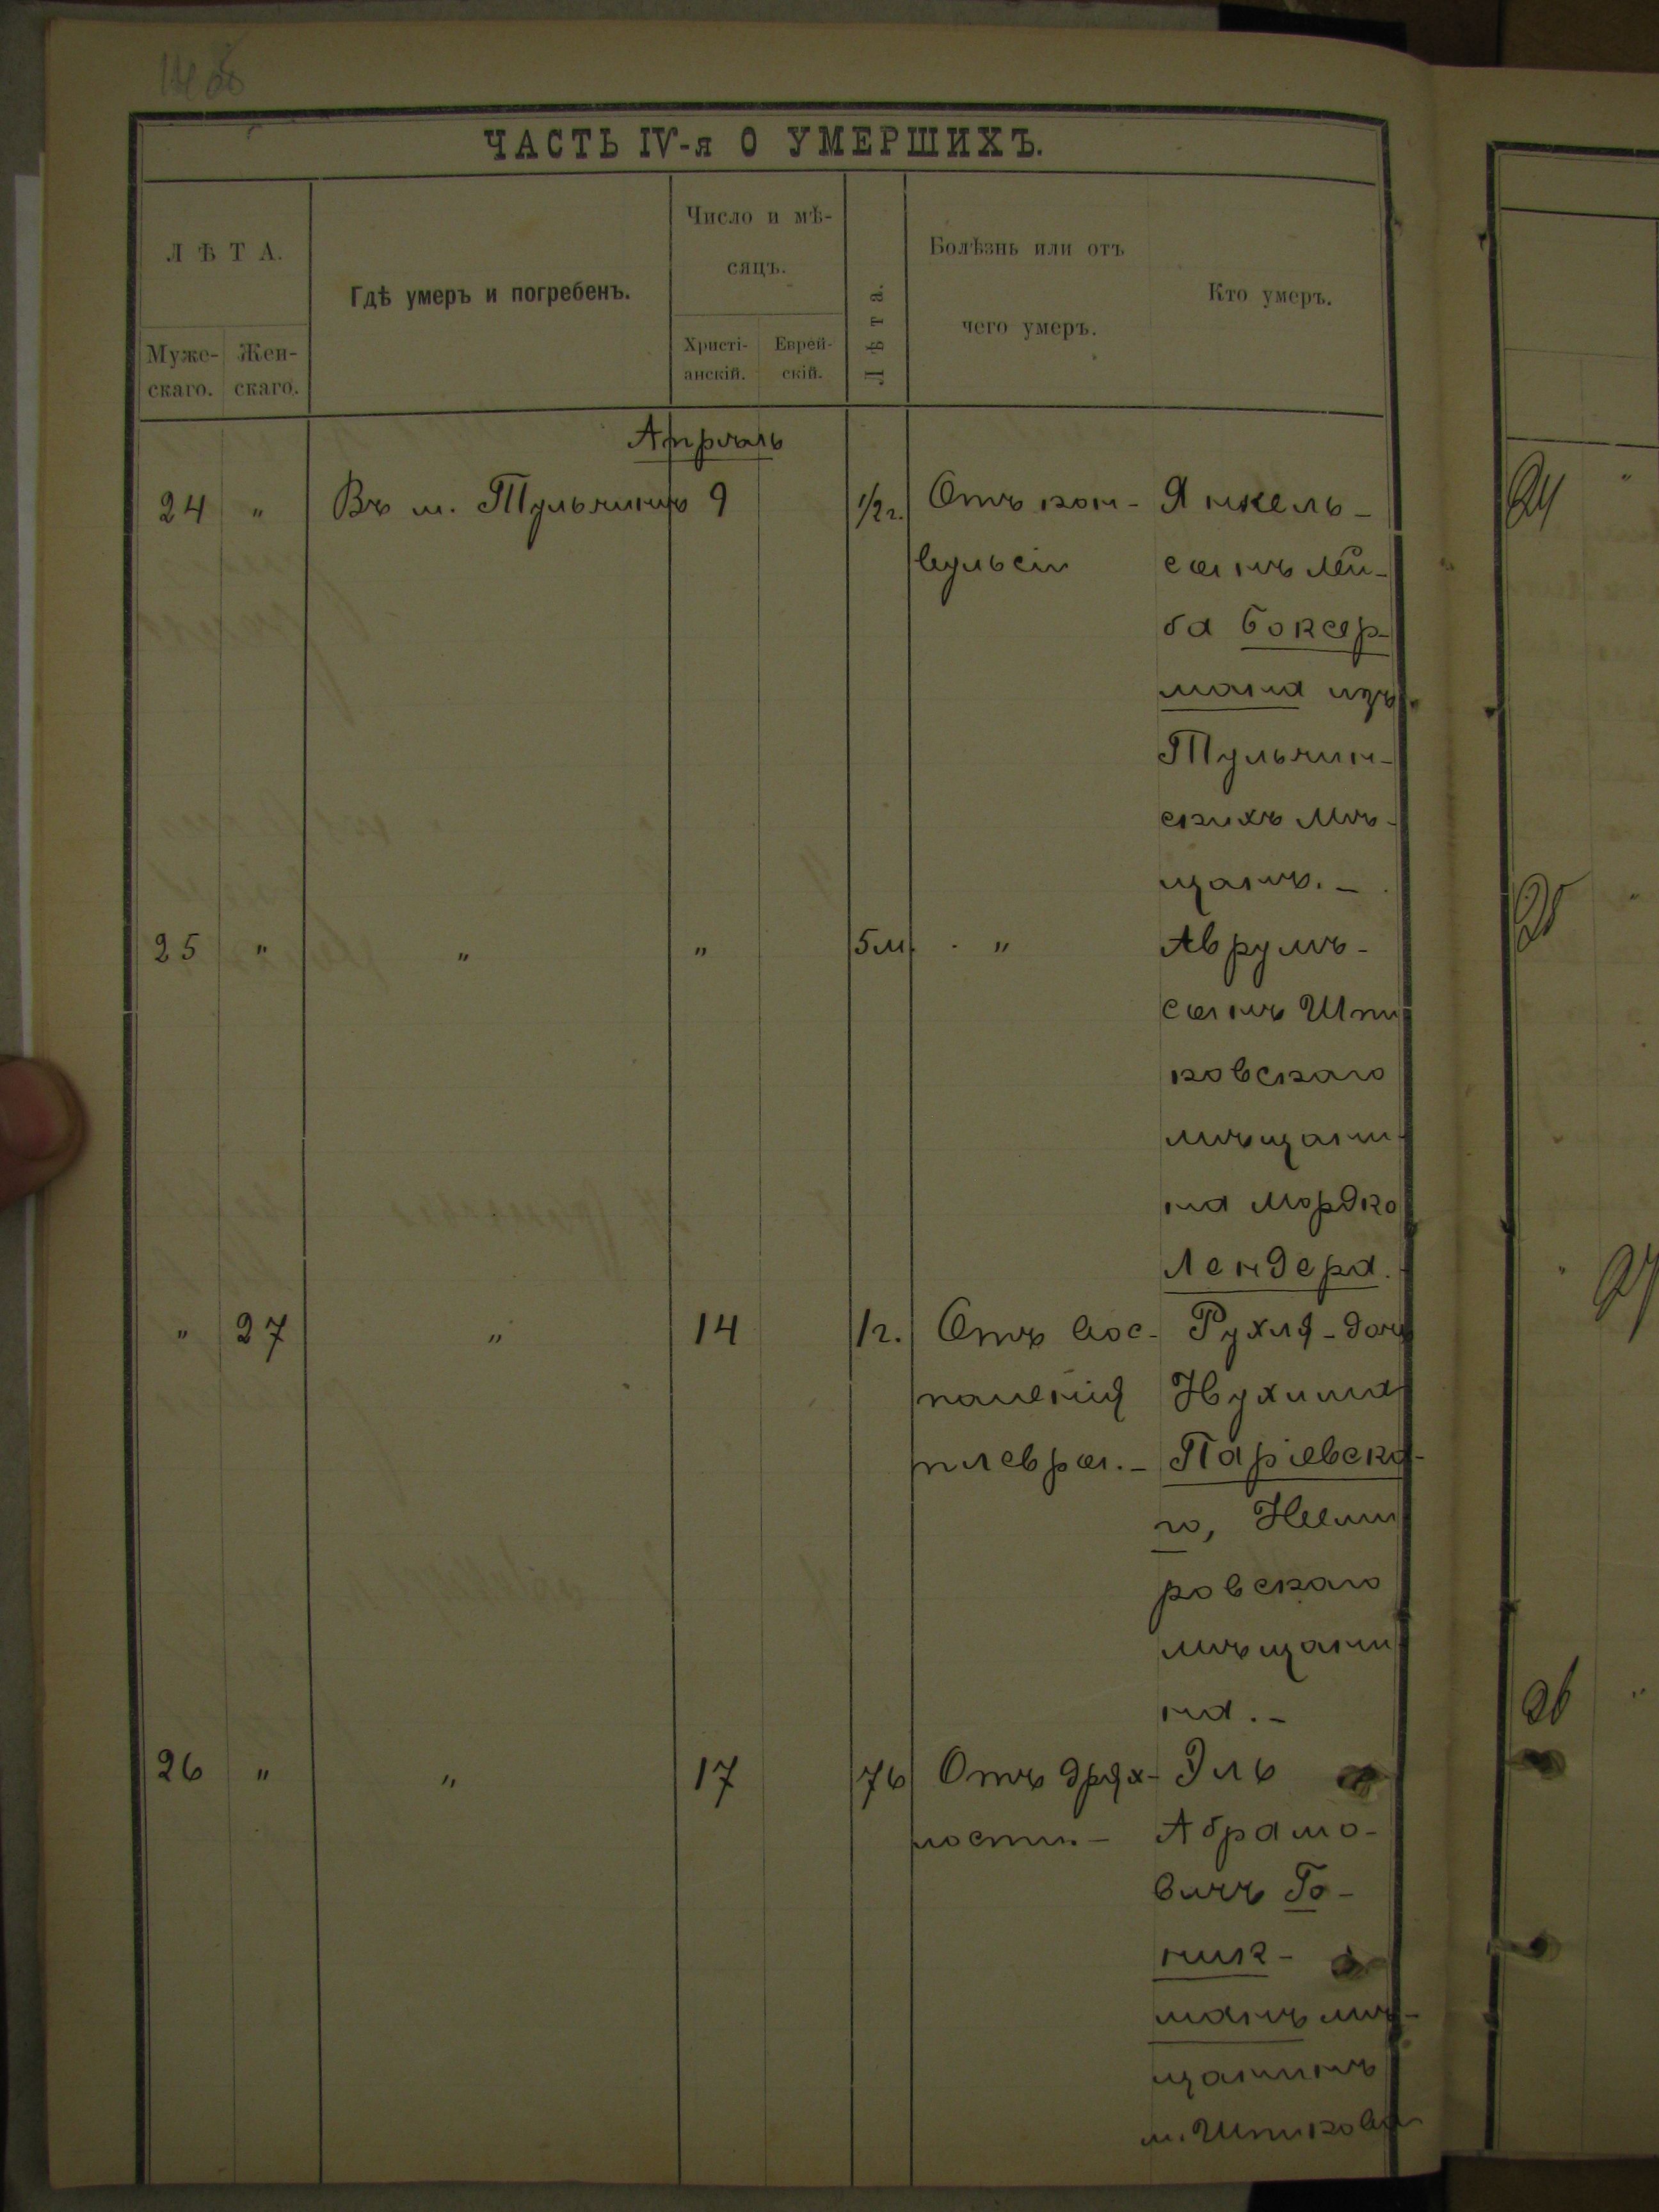 ЧАСТЬ IV-я О УМЕРШИХЪ.
Л Ѣ Т А.
Муже-
скаго.
Жен-
скаго.
Гдѣ умеръ и погребенъ.
Число и мѣ-
сяцъ.
Христі-
анскій.
Еврей-
скій.
Лѣта.
Болѣзнь или отъ
чего умеръ.
Кто умеръ.
Апрѣль
24 " Въ м. Тульчинѣ 9 1/2 г. Отъ кон- Янкель -
вульсіи сынъ Лей-
ба Боксер-
мана изъ
Тульчин-
скихъ мѣ-
щанъ. -
25 " " " 5 м. " Аврумъ -
сынъ Шпи
ковскаго
мѣщани-
на Мордко
Лендера.
" 27 " 14 1 г. Отъ вос- Рухля - дочь
паленія Нухима
плевры. - Паріевска-
го, Неми
ровскаго
мѣщани
на. -
26 " " 17 76 Отъ дрях- Эль
лости. - Абрамо-
вичъ Го-
ник-
манъ мѣ-
щанинъ
м. Шпикова
24 "
25 "
" 27
26 "